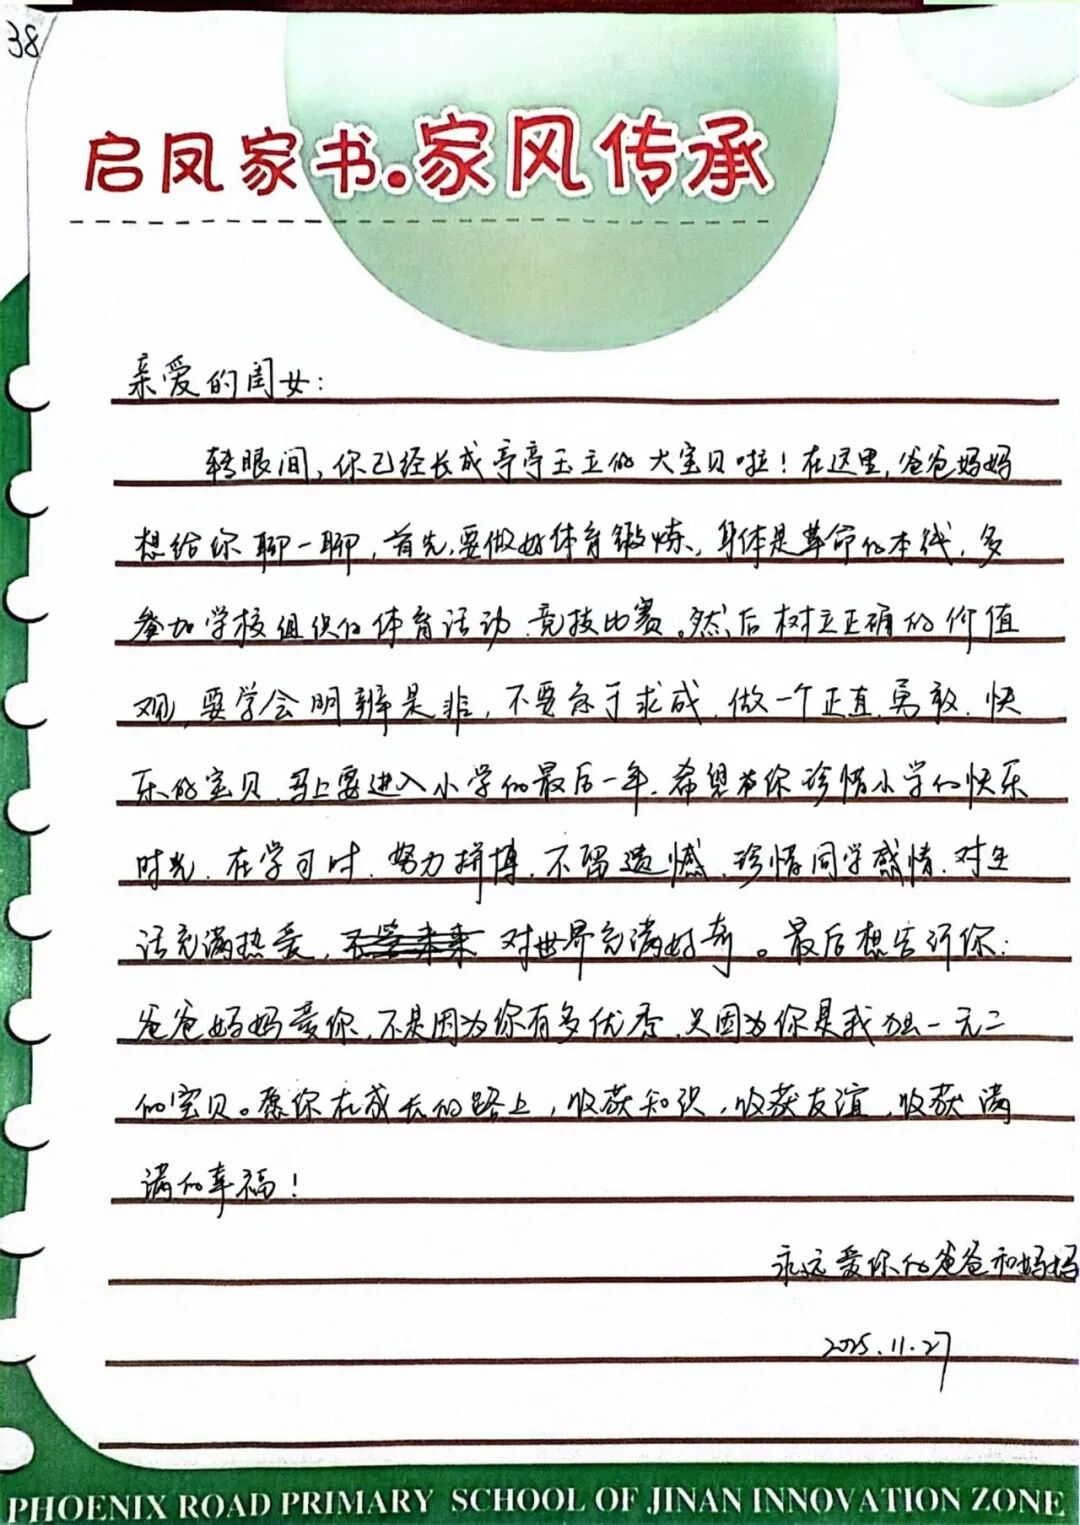 38
启凤家书.家风传承
亲爱的闺女:
转眼间,你已经长成亭亭玉立的大宝贝啦!在这里,爸爸妈妈
想给你聊一聊,首先,要做好体育锻炼,身体是革命的本钱,多
参加学校组织的体育活动、竞技比赛。然后树立正确的价值
观,要学会明辨是非,不要急于求成,做一个正直、勇敢、快
乐的宝贝,马上要进入小学的最后一年,希望你珍惜小学的快乐
时光,在学习时,努力拼搏,不留遗憾,珍惜同学感情,对生
活充满热爱,对世界充满好奇。最后想告诉你:
爸爸妈妈爱你,不是因为你有多优秀,只因为你是我独一无二
的宝贝。愿你在成长的路上,收获知识,收获友谊,收获满
满的幸福!
永远爱你的爸爸和妈妈
2025.11.27
PHOENIX ROAD PRIMARY SCHOOL OF JINAN INNOVATION ZONE